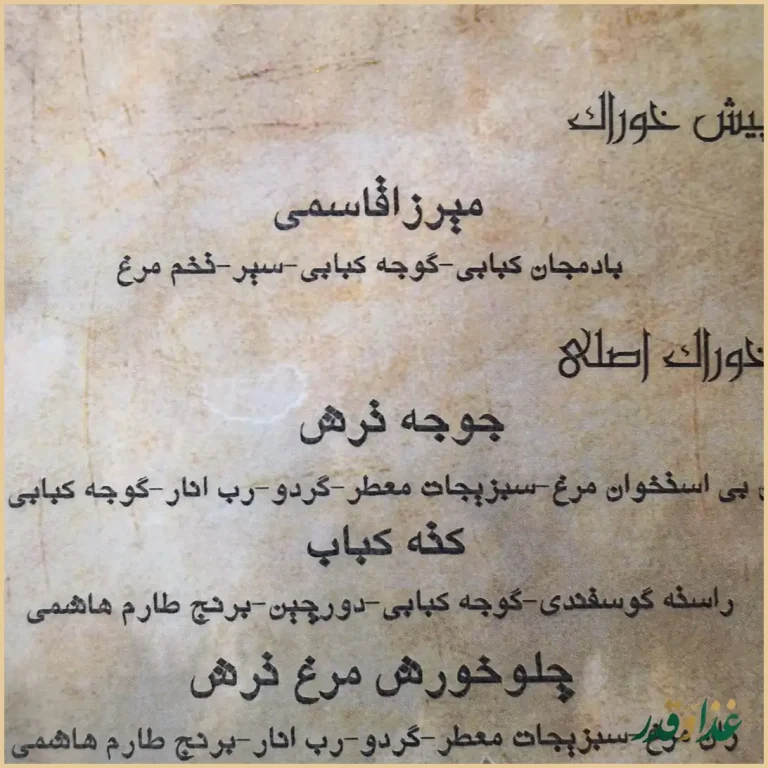 پیش خوراک
میرزاقاسمی
بادمجان کبابی-گوجه کبابی-سیر-تخم مرغ
خوراک اصلی
جوجه ترش
بی استخوان مرغ-سبزیجات معطر-گردو-رب انار-گوجه کبابی
کته کباب
راسته گوسفندی-گوجه کبابی-دورچین-برنج طارم هاشمی
چلوخورش مرغ ترش
ران مرغ-سبزیجات معطر-گردو-رب انار-برنج طارم هاشمی